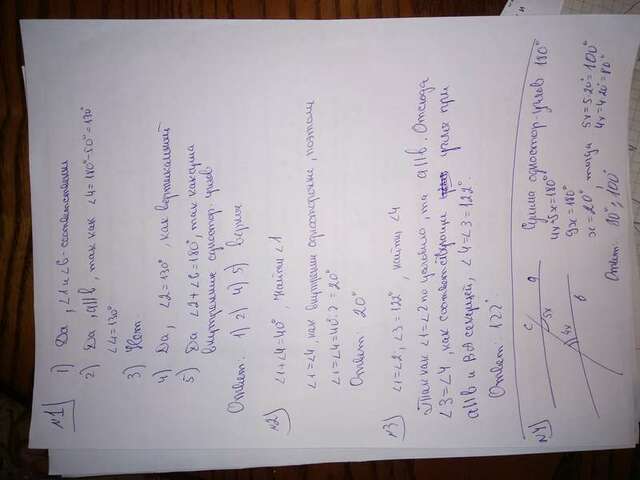 №1
1) Да, ∠1 и ∠6 - соответствен
2) Да, a||b, так как ∠4=180°-50°=130°
∠4=130°
3) Нет.
4) Да, ∠2=130°, как вертикальный
5) Да ∠2+∠6=180°, так как сума
внутренние одностор. углов
Ответ: 1) 2) 4) 5) верное
№2
∠1+∠4=40°, Найти ∠1
∠1=∠4, как внутрени односторочие, поэтому
∠1=∠4=40°:2=20°
Ответ 20°
№3
∠1=∠2, ∠3=122°, найти ∠4
Так как ∠1=∠2 по условию, то a||b. Отсюда
∠3=∠4, как соответствующие углы при
a||b и секущей, ∠4=∠3=122°.
Ответ: 122°
№4
c a
5x
4x
b
Сумма одностор. углов 180°
4x+5x=180°
9x=180°
x=20°, тогда 5x=5·20°=100°
4x=4·20°=80°
Ответ: 80°; 100°